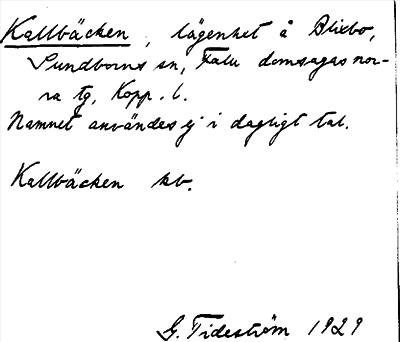 Kallbäcken, lägenhet å Blixbo,
Sundborns sn, Falu domsagas nor-
ra tg, Kopp. l.
Namnet användes ej i dagligt tal.
Kallbäcken kb.
G. Tideström 1929